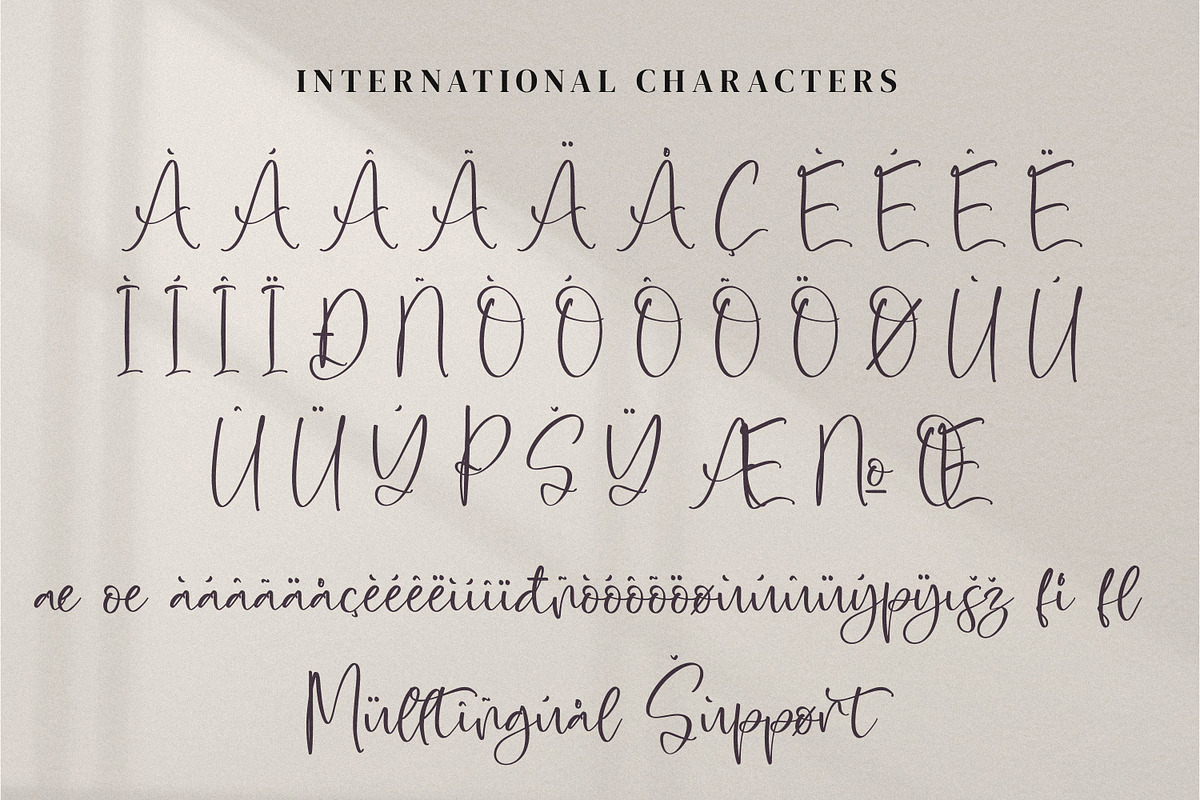 INTERNATIONAL CHARACTERS
À Á Â Ã Ä Å Ç È É Ê Ë
Ì Í Î Ï Đ Ñ Ò Ó Ô Õ Ö Ø Ù Ú
Û Ü Ý Þ Š Ÿ Æ № Œ
æ œ àáâãäåçèéêëìíîïđñòóôõöøùúûüýþÿışž fi fl
Mülltîñgúål Šùppørt